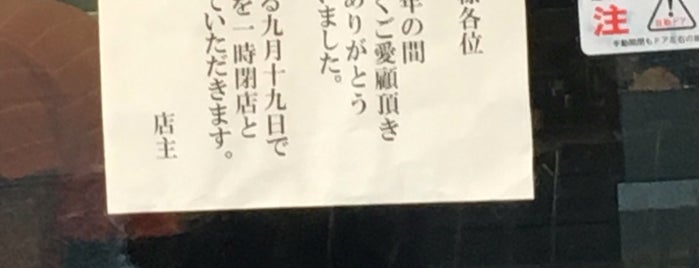 様各位
年の間
くご愛顧頂き
ありがとう
いました。
る九月十九日で
を一時閉店と
ていただきます。
店主
注
自動ドア